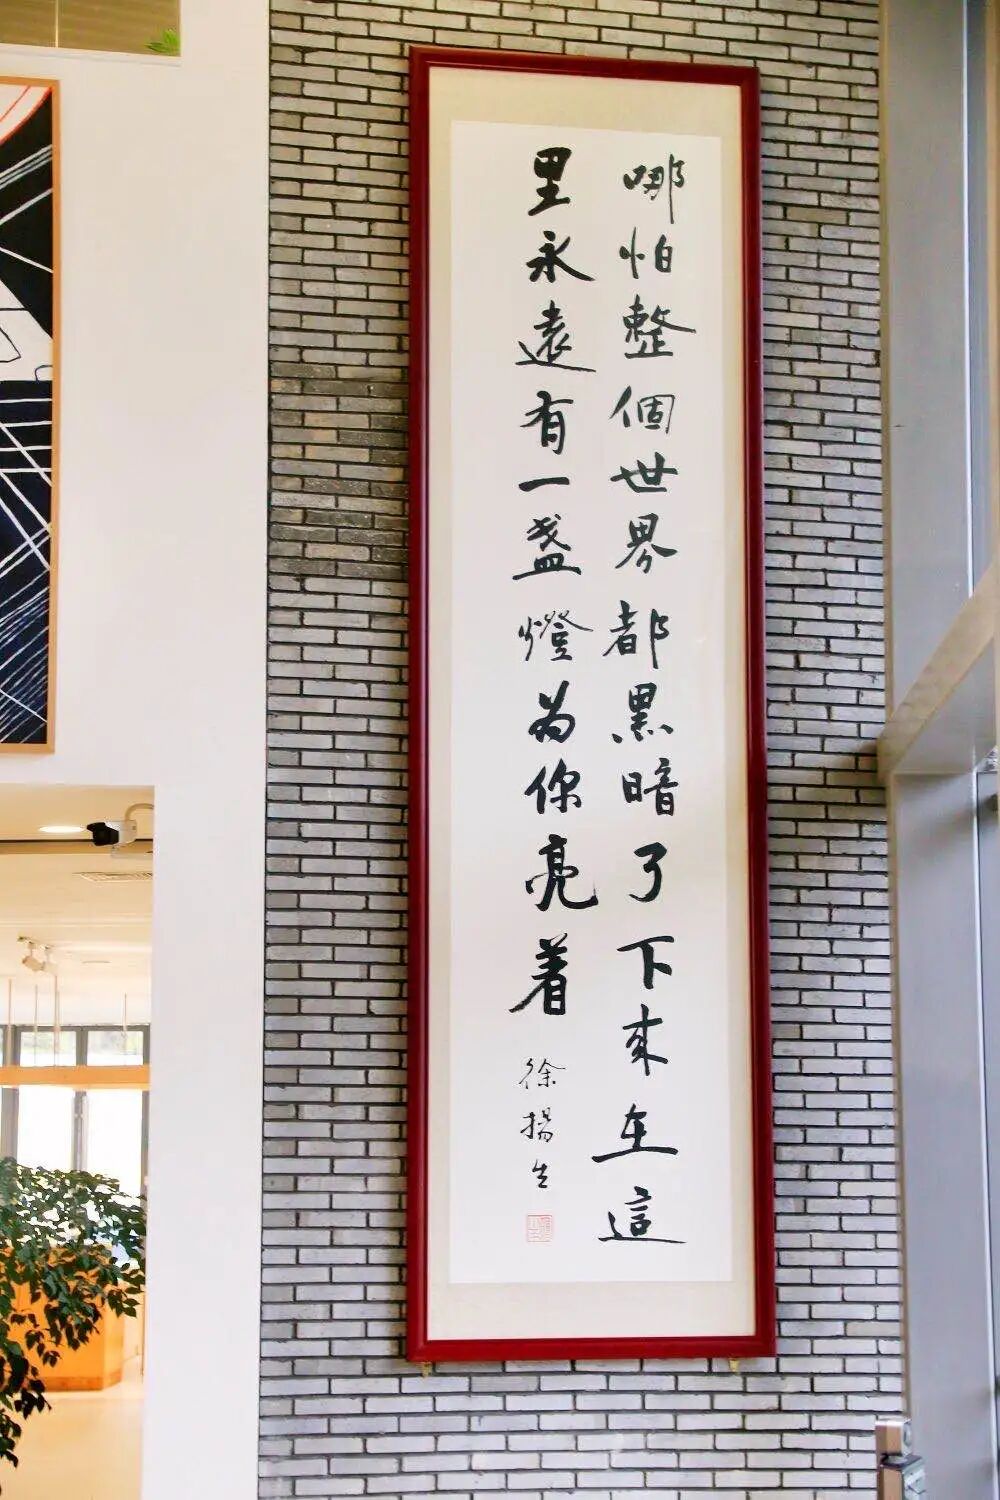 哪怕整個世界都黑暗了下來在這
里永遠有一盏燈为你亮着
徐揚生